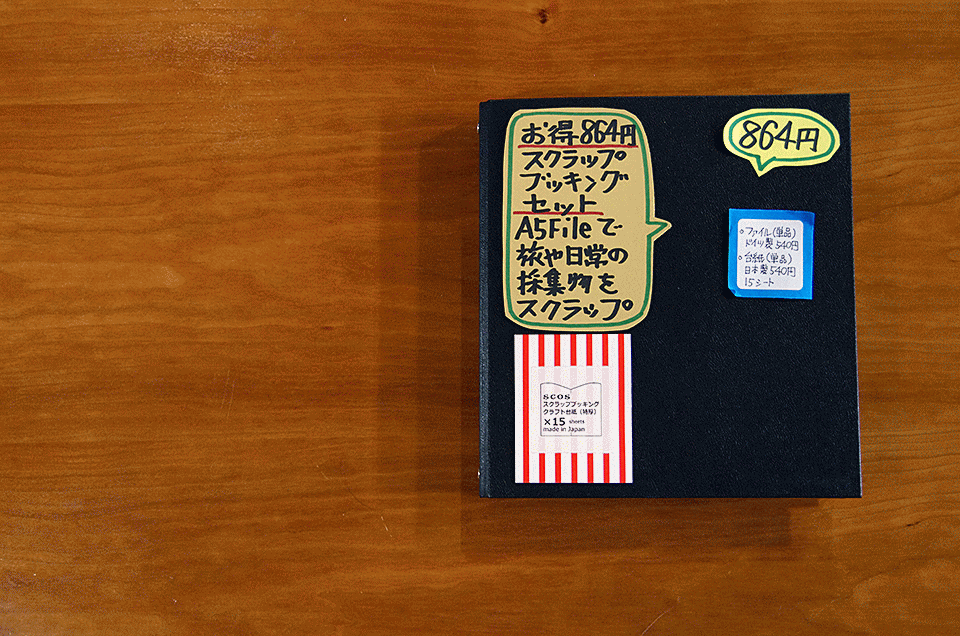 お得864円
スクラップ
ブッキング
セット
A5Fileで
旅や日常の
採集物を
スクラップ
864円
○ファイル(単品)
ドイツ製540円
○台紙(単品)
日本製540円
15シート
scos
スクラップブッキング
クラフト台紙(特厚)
×15 sheets
made in Japan